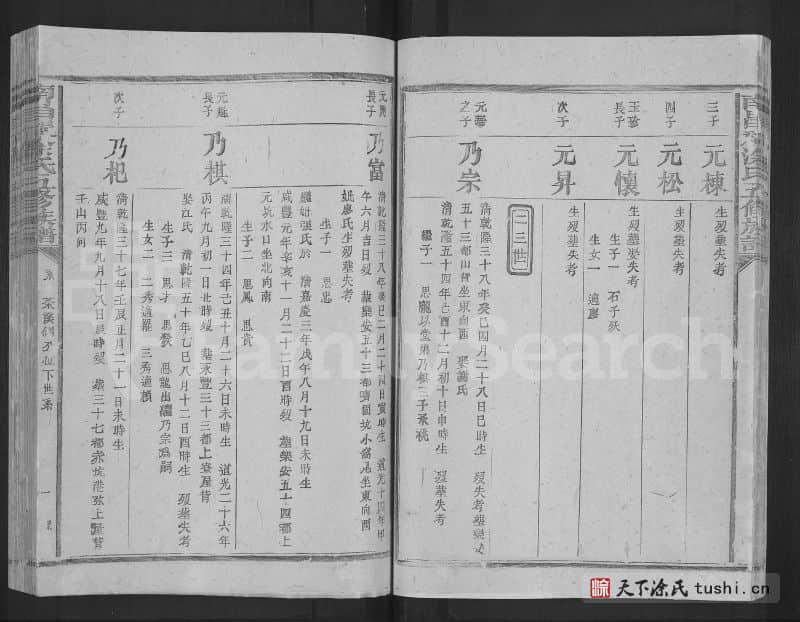 三子
元棟
生歿葬失考
四子
元松
生歿葬失考
玉珍長子
元懷
生歿葬娶失考
生子一 石子殀
生女一 適廖
次子
元昇
生歿葬失考
二三世
之子
乃宗
清乾隆三十八年癸巳四月二十八日巳時生 歿失考葬樂安
五十三都山背坐東向西 娶謝氏
清乾隆五十四年己酉十二月初十日申時生 歿葬失考
繼子一 思龍
長子
乃富
午六月吉日歿 葬樂安五十三都
坐東向西
娶廖氏生歿葬失考
生子一 思忠
繼娶張氏於 清嘉慶三年戊午八月十九日未時生
咸豐元年辛亥十一月二十二日酉時歿 葬樂安五十四都上
元坑水口坐北向南
生子二 思鳳 思賞
長子
乃棋
清乾隆三十四年己丑十月二十六日未時生 道光二十六年
丙午九月初一日北時歿 葬永豐三十三都上寮屋背
娶江氏 清乾隆五十年乙巳八月十二日酉時生 歿葬失考
生子三 思才 思龍出繼乃宗為嗣
生女二 二秀適羅 三秀適顏
次子
乃杞
清乾隆三十七年壬辰正月二十一日未時生
咸豐九年九月十八日辰時歿 葬三十七都
壬山丙向
下世系
天下涂氏 tushi.cn